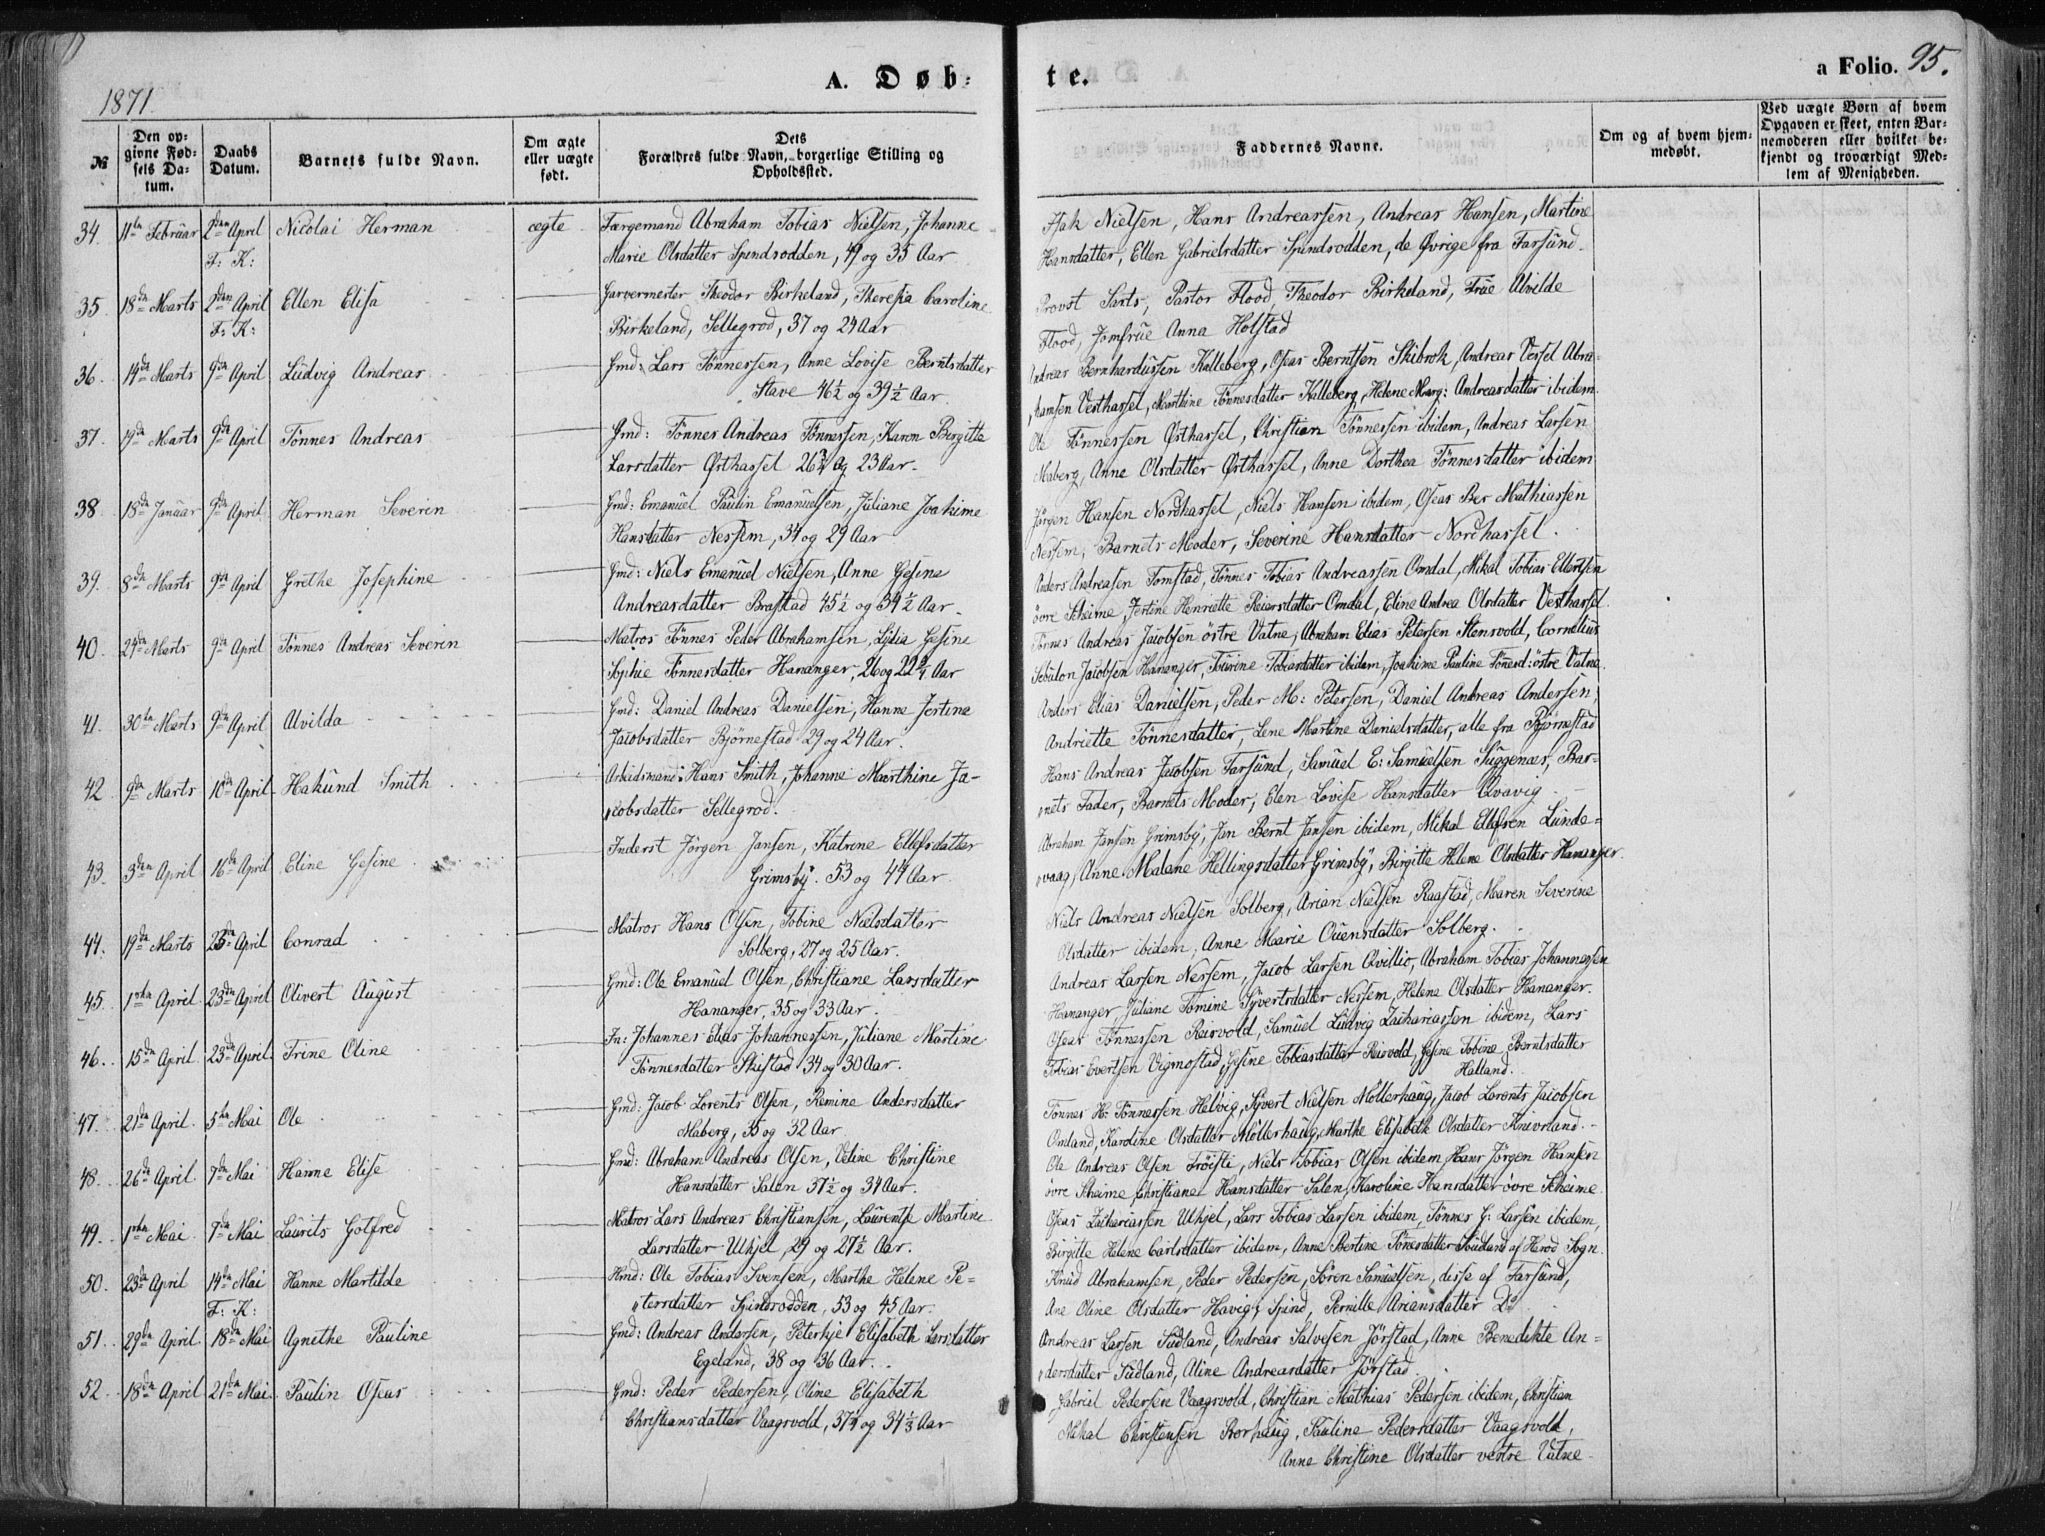 A. Døb-
te.
a Folio. 95.
1871
№
Den opgivne Fødsels Datum.
Daabs Datum.
Barnets fulde Navn.
Om ægte eller uægte født.
Dets Forældres fulde Navn, borgerlige Stilling og Opholdssted.
Faddernes Navne.
Om og af hvem hjemmedøbt.
Ved uægte Børn af hvem Opgaven er skeet, enten Barnemoderen eller hvilket bekjendt og troværdigt Medlem af Menigheden.
34. 11te Februar 2den April Nicolai Herman ægte Færgemand Abraham Tobias Nielsen, Johanne
F: K: Marie Olsdatter Spindsodden, 49 og 35 Aar
Isak Nielsen, Hans Andreassen, Andreas Hansen, Martine
Hansdatter, Ellen Gabrielsdatter Spindsodden, de Øvrige fra Farsund.
35. 18de Marts 2den April Ellen Elisa Garvermester Theodor Birkeland, Theresia Caroline
F: K: Birkeland, Sellegrod, 37 og 24 Aar
Provst Sarts, Pastor Flood, Theodor Birkeland, Frue Alvilde
Flood, Jomfrue Anna Holstad
36. 14de Marts 9de April Ludvig Andreas Gmd: Lars Tønnessen, Anne Lovise Berntsdatter
Stave 46½ og 39½ Aar.
Andreas Bernhardussen Kalleberg, Oseas Berntsen Skibrok, Andreas Vessel Abra-
hamsen Vesthassel, Marthine Tønnesdatter Kalleberg, Helene Marg: Andreasdatter ibidem.
37. 14de Marts 9de April Tønnes Andreas Gmd: Tønnes Andreas Tønnessen, Karen Birgitte
Larsdatter Østhassel 26¾ og 23 Aar.
Ole Tønnessen Østhassel, Christian Tønnessen ibidem, Andreas Larsen
Maberg, Anne Olsdatter Østhassel, Anne Dorthea Tønnesdatter ibidem
38. 18de Januar 9de April Herman Severin Gmd: Emanuel Paulin Emanuelsen, Juliane Joakime
Hansdatter Nessem, 34 og 29 Aar
Jørgen Hansen Nordhassel, Niels Hansen ibidem, Oseas Ber Mathiassen
Nessem, Barnets Moder, Severine Hansdatter Nordhassel.
39. 8de Marts 9de April Grethe Josephine Gmd: Niels Emanuel Nielsen, Anne Gesine
Andreasdatter Brastad 45½ og 34½ Aar.
Anders Andreasen Tomstad, Tønnes Tobias Andreassen Omdal, Mikal Tobias Ellertsen
övre Skeime, Jertine Henriette Reiersdatter Omdal, Eline Andrea Olsdatter Vesthassel.
40. 24de Marts 9de April Tønnes Andreas Severin Matros Tønnes Peder Abrahamsen, Lydia Gesine
Sophie Tønnesdatter Hananger, 26 og 22¾ Aar
Tønnes Andreas Jacobsen östre Vatne, Abraham Elias Petersen Stensvold, Cornelius
Sebulon Jacobsen Hananger, Tobine Tobiasdatter ibidem, Joakime Pauline Tönesd: östre Vatne.
41. 30te Marts 9de April Alvilda Gmd: Daniel Andreas Danielsen, Hanne Jertine
Jacobsdatter Bjørnestad 29 og 24 Aar.
Anders Elias Danielsen, Peder M: Petersen, Daniel Andreas Andersen,
Andriette Tönnesdatter, Lene Martine Danielsdatter, alle fra Bjørnestad
42. 9de Marts 10de April Hakund Smith Arbeidsmand: Hans Smith, Johanne Marthine Ja-
cobsdatter Sellegrod.
Hans Andreas Jacobsen Farsund, Samuel E: Samuelsen Tuggenæs, Bar-
nets Fader, Barnets Moder, Elen Lovise Hansdatter Qvavig
43. 3den April 16de April Eline Gesine Inderst Jörgen Jansen, Katrine Ellefsdatter
Grimsby. 53 og 44 Aar
Abraham Jansen Grimsby, Jan Bernt Jansen ibidem, Mikal Ellefsen Lunde-
vaag, Anne Malene Hellingsdatter Grimsby, Birgitte Helene Olsdatter Hananger
44. 19de Marts 23de April Conrad Matros Hans Olsen, Tobine Nielsdatter
Solberg, 27 og 25 Aar.
Niels Andreas Nielsen Solberg, Arian Nielsen Raastad, Maren Severine
Olsdatter ibidem, Anne Marie Ouensdatter Solberg.
45. 1ste April 23de April Olivert August Gmd: Ole Emanuel Olsen, Christiane Larsdatter
Hananger, 35 og 33 Aar.
Andreas Larsen Nessem, Jacob Larsen Qvillio, Abraham Tobias Johannessen
Hananger, Juliane Tomine Syvertsdatter Nessem, Helene Olsdatter Hananger.
46. 15de April 23de April Trine Oline In: Johannes Elias Johannessen, Juliane Martine
Tönnesdatter Skistad 34 og 30 Aar.
Oseas Tönnessen Reirvold, Samuel Ludvig Zachariassen ibidem, Lars
Tobias Evertsen Vigmostad, Gesine Tobiasdatter Reirvold, Gesine Tobine Berntsdatter
Halland.
47. 21de April 5te Mai Ole Gmd: Jacob Lorents Olsen, Remine Andersdatter
Maberg, 35 og 32 Aar
Tönnes H: Tönnessen Helvig, Syvert Nielsen Møllerhaug, Jacob Lorents Jacobsen
Omland, Karoline Olsdatter Møllerhaug, Marthe Elisabeth Olsdatter Knivsland.
48. 26de April 7de Mai Hanne Elise Gmd: Abraham Andreas Olsen, Veline Christine
Hansdatter Salen 37½ og 34 Aar.
Ole Andreas Olsen Frøisti, Niels Tobias Olsen ibidem, Hans Jörgen Hansen
övre Skeime Christiane Hansdatter Salen, Karoline Hansdatter övre Skeime.
49. 1ste Mai 7de Mai Laurits Gotfred Matros Lars Andreas Christiansen, Laurentse Martine
Larsdatter Ulhjel, 29 og 27½ Aar.
Oseas Zachariassen Ulhjel, Lars Tobias Larsen ibidem, Tönnes G: Larsen ibidem,
Birgitte Helene Carlsdatter ibidem, Anne Bertine Tönesdatter Sudland af Herod Sogn.
50. 23de April 14de Mai Hanne Martilde Hmd: Ole Tobias Svensen, Marthe Helene Pe-
F: K: tersdatter Spindsodden, 53 og 45 Aar.
Knud Abrahamsen, Peder Pedersen, Sören Samuelsen, disse af Farsund,
Ane Oline Olsdatter Havig, Spind, Pernille Ariansdatter Do
51. 29de April 18de Mai Agnethe Pauline Gmd: Andreas Andersen, Peterkje Elisabeth Larsdatter
Egeland, 38 og 36 Aar.
Andreas Larsen Sudland, Andreas Salvesen Jörstad, Anne Benedikte An-
dersdatter Sudland, Aline Andreasdatter Jörstad
52. 18de April 21de Mai Paulin Oseas Gmd: Peder Pedersen, Oline Elisabeth
Christiansdatter Vaagsvold, 37¼ og 34⅓ Aar
Gabriel Pedersen Vaagsvold, Christian Mathias Pedersen ibidem, Christian
Mikal Christensen Borhaug, Pauline Pedersdatter Vaagsvold,
Anne Christine Olsdatter vestre Vatne